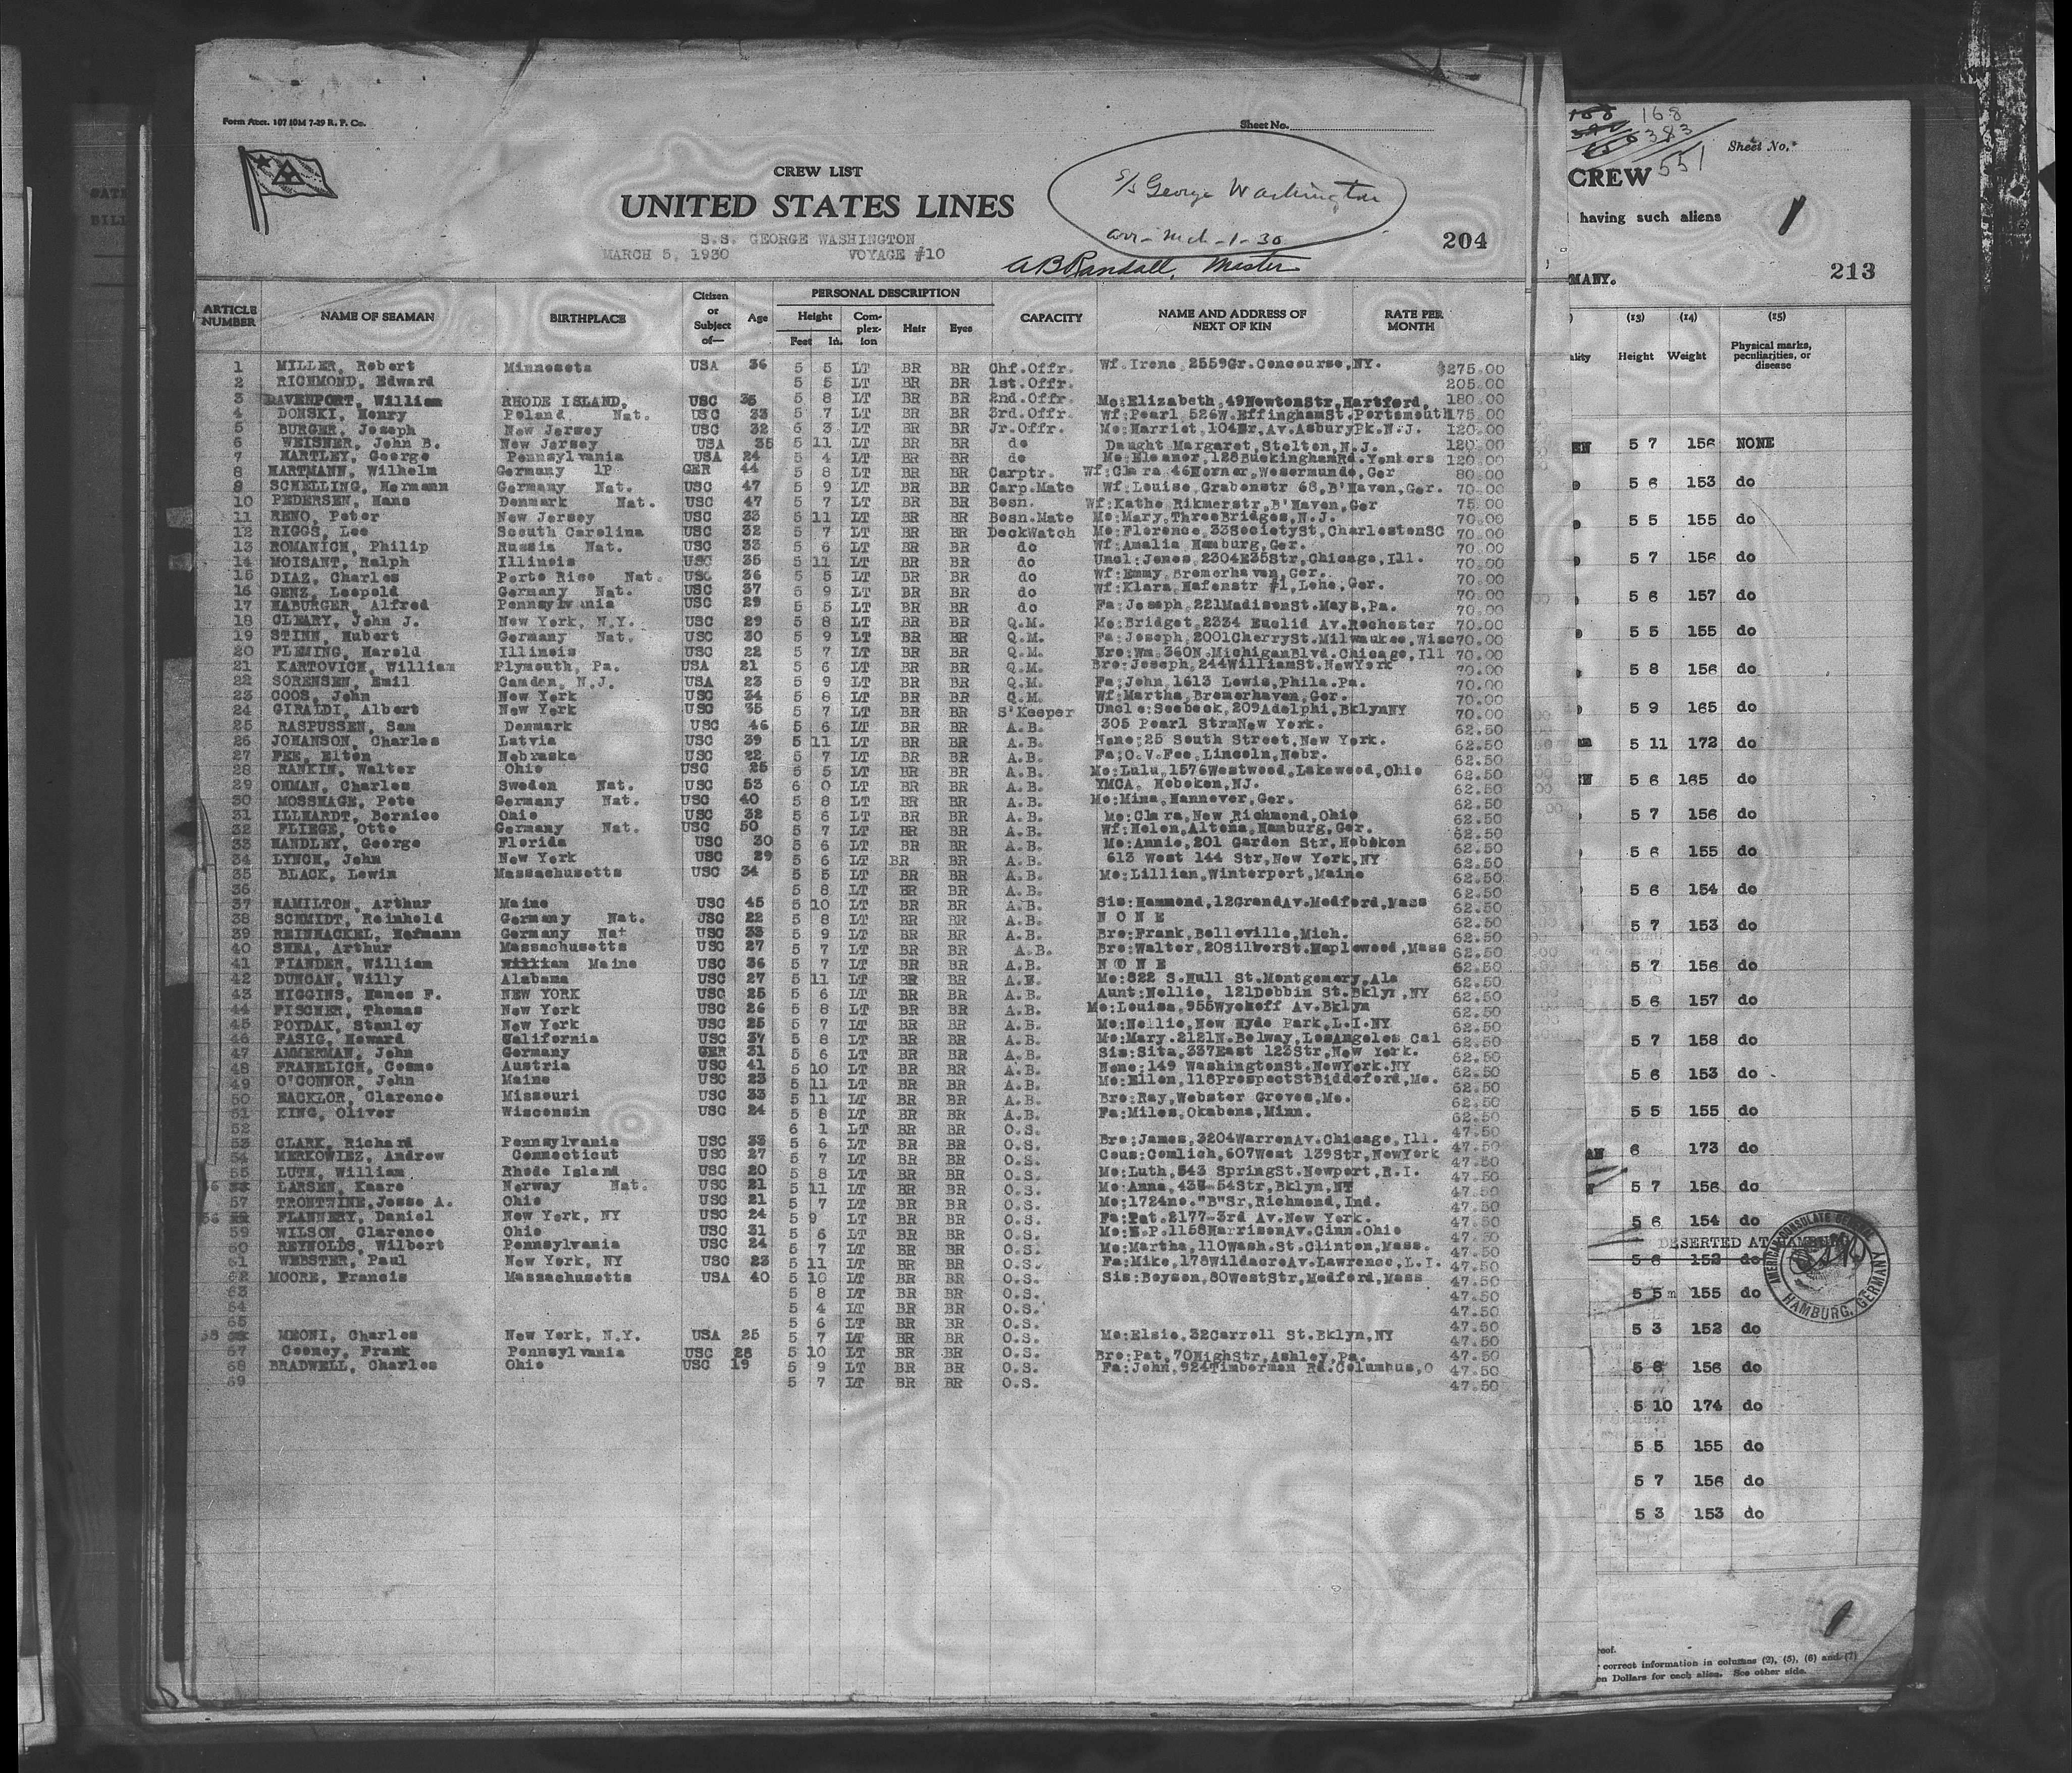 Form Acct. 107 10M 7-29 R. P. Co.
Sheet No.
CREW LIST
UNITED STATES LINES
S.S. GEORGE WASHINGTON
MARCH 5, 1930 VOYAGE #10
S/S George Washington
arr- Mch-1-30
A B Randall, Master
204
ARTICLE NUMBER NAME OF SEAMAN BIRTHPLACE Citizen or Subject of— Age PERSONAL DESCRIPTION Height Feet In. Complexion Hair Eyes CAPACITY NAME AND ADDRESS OF NEXT OF KIN RATE PER MONTH
1 MILLER, Robert Minnesota USA 36 5 5 LT BR BR Chf.Offr. Wf.Irene,2559Gr.Concourse,NY. $275.00
2 RICHMOND, Edward 5 5 LT BR BR 1st.Offr. 205.00
3 DAVENPORT, William RHODE ISLAND, USC 35 5 8 LT BR BR 2nd.Offr. Mo:Elizabeth,49NewtonStr,Hartford, 180.00
4 DONSKI, Henry Poland Nat. USC 33 5 7 LT BR BR 3rd.Offr. Wf:Pearl 526W.EffinghamSt.Portsmouth 175.00
5 BURGER, Joseph New Jersey USC 32 6 3 LT BR BR Jr.Offr. Mo:Harriet,104Br.Av.AsburyPk.N.J. 120.00
6 WEISNER, John B. New Jersey USA 35 5 11 LT BR BR do Daught Margaret,Stelton,N.J. 120.00
7 HARTLEY, George Pennsylvania USA 24 5 4 LT BR BR do Mo:Eleanor,128BuckinghamRd.Yonkers 120.00
8 HARTMANN, Wilhelm Germany 1P GER 44 5 8 LT BR BR Carptr. Wf:Clara 46Werner,Wesermunde,Ger 80.00
9 SCHELLING, Hermann Germany Nat. USC 47 5 9 LT BR BR Carp.Mate Wf:Louise,Grabenstr 68,B'Haven,Ger. 70.00
10 PEDERSEN, Hans Denmark Nat. USC 47 5 7 LT BR BR Bosn. Wf:Kathe Rikmerstr,B'Haven,Ger 75.00
11 RENO, Peter New Jersey USC 33 5 11 LT BR BR Bosn.Mate Mo:Mary,ThreeBridges,N.J. 70.00
12 RIGGS, Leo Scouth Carolina USC 32 5 7 LT BR BR DeckWatch Mo:Florence,33SocietySt,CharlestonSC 70.00
13 ROMANICH, Philip Russia Nat. USC 33 5 6 LT BR BR do Wf:Amalia Hamburg,Ger. 70.00
14 MOISANT, Ralph Illinois USC 35 5 11 LT BR BR do Uncl:Jones,2304E35Str,Chicago,Ill. 70.00
15 DIAZ, Charles Porto Rico Nat. USC 36 5 5 LT BR BR do Wf:Emmy,Bremerhaven,Ger. 70.00
16 GENZ, Leopold Germany Nat. USC 37 5 9 LT BR BR do Wf:Klara,Hafenstr #1,Lehe,Ger. 70.00
17 HABURGER, Alfred Pennsylvania USC 29 5 5 LT BR BR do Fa:Joseph,221MadisonSt.Mays,Pa. 70.00
18 CLEARY, John J. New York, N.Y. USC 29 5 8 LT BR BR Q.M. Mo:Bridget,2334 Euclid Av.Rochester 70.00
19 STINN, Hubert Germany Nat. USC 30 5 9 LT BR BR Q.M. Fa:Joseph,2001CherrySt.Milwaukee,Wisc 70.00
20 FLEMING, Harold Illinois USC 22 5 7 LT BR BR Q.M. Bro:Wm.360N.MichiganBlvd.Chicago,Ill 70.00
21 KARTOVICH, William Plymouth, Pa. USA 21 5 6 LT BR BR Q.M. Bro:Joseph,244WilliamSt.NewYork 70.00
22 SORENSEN, Emil Camden, N.J. USA 23 5 9 LT BR BR Q.M. Fa:John,1613 Lewis,Phila.Pa. 70.00
23 COOS, John New York USC 34 5 8 LT BR BR Q.M. Wf:Martha,Bremerhaven,Ger. 70.00
24 GIRALDI, Albert New York USC 35 5 7 LT BR BR S'Keeper Uncle:Seebeck,209Adelphi,BklynNY 70.00
25 RASPUSSEN, Sam Denmark USC 46 5 6 LT BR BR A.B. 305 Pearl StrmNew York. 62.50
26 JOHANSON, Charles Latvia USC 39 5 11 LT BR BR A.B. None:25 South Street,New York. 62.50
27 FEE, Elton Nebraska USC 22 5 7 LT BR BR A.B. Fa;O.V.Fee,Lincoln,Nebr. 62.50
28 RANKIN, Walter Ohio USC 25 5 5 LT BR BR A.B. Mo:Lulu,1576Westwood,Lakewood,Ohio 62.50
29 OHMAN, Charles Sweden Nat. USC 53 6 0 LT BR BR A.B. YMCA, Hoboken,NJ. 62.50
30 MOSSHAGE, Pete Germany Nat. USC 40 5 8 LT BR BR A.B. Mo:Mina,Hannover,Ger. 62.50
31 ILLHARDT, Bernice Ohio USC 32 5 6 LT BR BR A.B. Mo:Clara,New Richmond,Ohio 62.50
32 FLIEGE, Otto Germany Nat. USC 50 5 7 LT BR BR A.B. Wf:Helen,Altona,Hamburg,Ger. 62.50
33 HANDLEY, George Florida USC 30 5 6 LT BR BR A.B. Mo:Annie,201 Garden Str,Hoboken 62.50
34 LYNCH, John New York USC 29 5 6 LT BR BR A.B. 613 West 144 Str,New York,NY 62.50
35 BLACK, Lewis Massachusetts USC 34 5 5 LT BR BR A.B. Mo:Lillian,Winterport,Maine 62.50
36 5 8 LT BR BR A.B. 62.50
37 HAMILTON, Arthur Maine USC 45 5 10 LT BR BR A.B. Sis:Hammond,12GrandAv.Medford,Mass 62.50
38 SCHMIDT, Reinhold Germany Nat. USC 22 5 8 LT BR BR A.B. N O N E 62.50
39 REINHACKEL, Hofmann Germany Nat USC 33 5 9 LT BR BR A.B. Bro:Frank,Belleville,Mich. 62.50
40 SHEA, Arthur Massachusetts USC 27 5 7 LT BR BR A.B. Bro:Walter,20SilverSt.Maplewood,Mass 62.50
41 FIANDER, William William Maine USC 36 5 7 LT BR BR A.B. N O N E 62.50
42 DUNCAN, Willy Alabama USC 27 5 11 LT BR BR A.B. Mo:822 S.Hull St.Montgomery,Ala 62.50
43 HIGGINS, Hames F. NEW YORK USC 25 5 6 LT BR BR A.B. Aunt:Nellie, 121Dobbin St.Bklyn,NY 62.50
44 FISCHER, Thomas New York USC 26 5 8 LT BR BR A.B. Mo:Louisa,955Wyckoff Av.Bklyn 62.50
45 POYDAK, Stanley New York USC 25 5 7 LT BR BR A.B. Mo:Nellie,New Hyde Park,L.I.NY 62.50
46 FASIG, Howard California USC 37 5 8 LT BR BR A.B. Mo:Mary.2121N.Belway,LosAngeles Cal 62.50
47 AMMERMAN, John Germany GER 31 5 6 LT BR BR A.B. Sis:Sita,337East 123Str,New York. 62.50
48 FRANELICH, Cosmo Austria USC 41 5 10 LT BR BR A.B. None:149 WashingtonSt.NewYork.NY 62.50
49 O'CONNOR, John Maine USC 23 5 11 LT BR BR A.B. Mo:Ellen,118ProspectStBiddeford,Me. 62.50
50 BACKLOR, Clarence Missouri USC 33 5 11 LT BR BR A.B. Bro:Ray,Webster Groves,Mo. 62.50
51 KING, Oliver Wisconsin USC 24 5 8 LT BR BR A.B. Fa:Miles,Okabena,Minn. 62.50
52 6 1 LT BR BR O.S. 47.50
53 CLARK, Richard Pennsylvania USC 33 5 6 LT BR BR O.S. Bro:James,3204WarrenAv.Chicago,Ill. 47.50
54 MERKOWIEZ, Andrew Connecticut USC 27 5 7 LT BR BR O.S. Cous:Comlich,607West 139Str,NewYork 47.50
55 LUTH, William Rhode Island USC 20 5 8 LT BR BR O.S. Mo:Luth,543 SpringSt.Newport,R.I. 47.50
56 LARSEN, Kaare Norway Nat. USC 21 5 11 LT BR BR O.S. Mo:Anna,437-54Str,Bklyn,NY 47.50
57 TRONTWINE,Jesse A. Ohio USC 21 5 7 LT BR BR O.S. Mo;1724no."B"Sr,Richmond,Ind. 47.50
58 FLANNERY, Daniel New York, NY USC 24 5 9 LT BR BR O.S. Fa:Pat.2177-3rd Av.New York. 47.50
59 WILSON, Clarence Ohio USC 31 5 6 LT BR BR O.S. Mo:E.P.1158HarrisonAv.Cinn.Ohio 47.50
60 REYNOLDS, Wilbert Pennsylvania USC 24 5 7 LT BR BR O.S. Mo:Martha,110Wash.St.Clinton,Mass. 47.50
61 WEBSTER, Paul New York, NY USC 23 5 11 LT BR BR O.S. Fa:Mike,178WildacreAv.Lawrence,L.I. 47.50
62 MOORE, Francis Massachusetts USA 40 5 10 LT BR BR O.S. Sis:Boyson,80WestStr,Medford,Mass 47.50
63 5 8 LT BR BR O.S. 47.50
64 5 4 LT BR BR O.S. 47.50
65 5 6 LT BR BR O.S. 47.50
MEONI, Charles New York, N.Y. USA 25 5 7 LT BR BR O.S. Mo:Elsie,32Carroll St.Bklyn,NY 47.50
67 Cooney, Frank Pennsylvania USC 28 5 10 LT BR BR O.S. Bro:Pat,70HighStr,Ashley,Pa. 47.50
68 BRADWELL, Charles Ohio USC 19 5 9 LT BR BR O.S. Fa:John,924Timberman Rd.Columbus,O 47.50
69 5 7 LT BR BR O.S. 47.50
168
383
551
Sheet No.
CREW
having such aliens
1
MANY.
213
(13) (14) (15)
Height Weight Physical marks, peculiarities, or disease
5 7 156 NONE
5 6 153 do
5 5 155 do
5 7 156 do
5 6 157 do
5 5 155 do
5 8 156 do
5 9 165 do
5 11 172 do
5 6 165 do
5 7 156 do
5 6 155 do
5 6 154 do
5 7 153 do
5 7 156 do
5 6 157 do
5 7 158 do
5 6 153 do
5 5 155 do
6 173 do
5 7 156 do
5 6 154 do
DESERTED AT HAMBURG
5 6 152 do
AMERICAN CONSULATE GENERAL
HAMBURG, GERMANY
5 5 155 do
5 3 152 do
5 6 156 do
5 10 174 do
5 5 155 do
5 7 156 do
5 3 153 do
1
correct information in columns (2), (5), (6) and (7)
en Dollars for each alien. See other side.